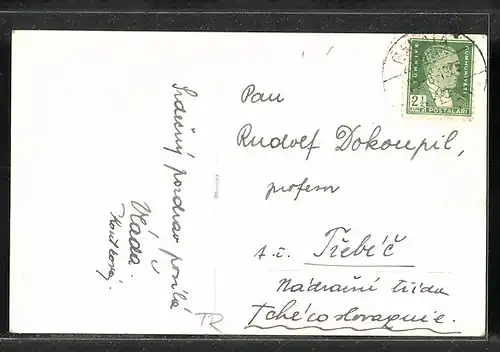 Srdečný pozdrav posílá
Vláďa.
Pan
Rudolf Dokoupil,
profesor
t.č. Třebíč
Nádražní třída
Tchécoslovaquie.
TR
TÜRKİYE CUMHURİYETİ
2½
KURUŞ POSTALARI